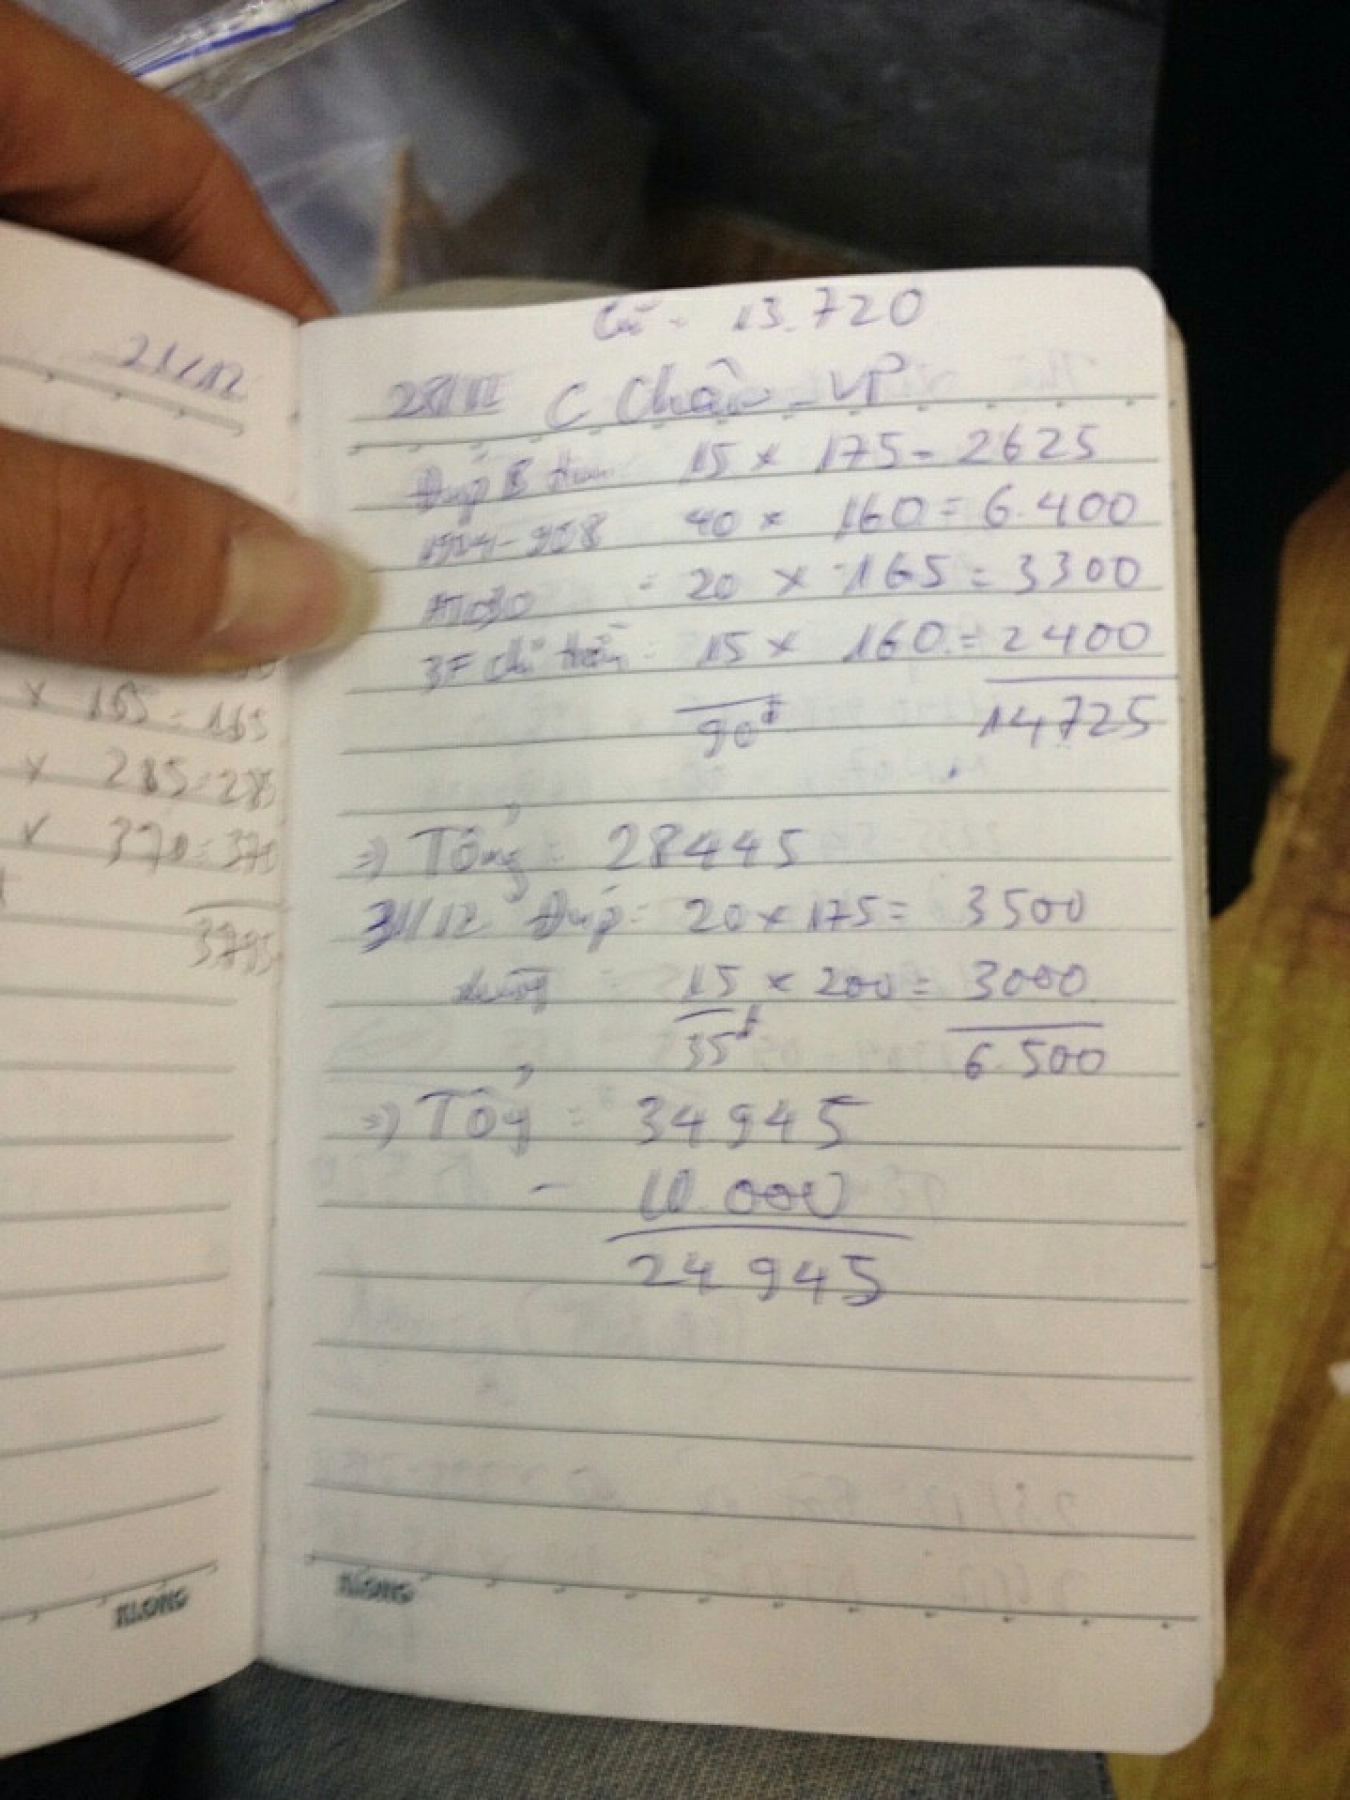 21/12
× 165 = 165
× 285 = 285
× 370 = 370
3795
KLONG
Cũ = 13.720
28/12 C Châu - VP
Đúp 15 × 175 = 2625
40 × 160 = 6.400
20 × 165 = 3300
3F chỉ 15 × 160 = 2400
90 14725
=> Tổng = 28445
31/12 Đúp = 20 × 175 = 3500
15 × 200 = 3000
35 6.500
=> Tổg = 34945
- 10.000
24945
KLONG